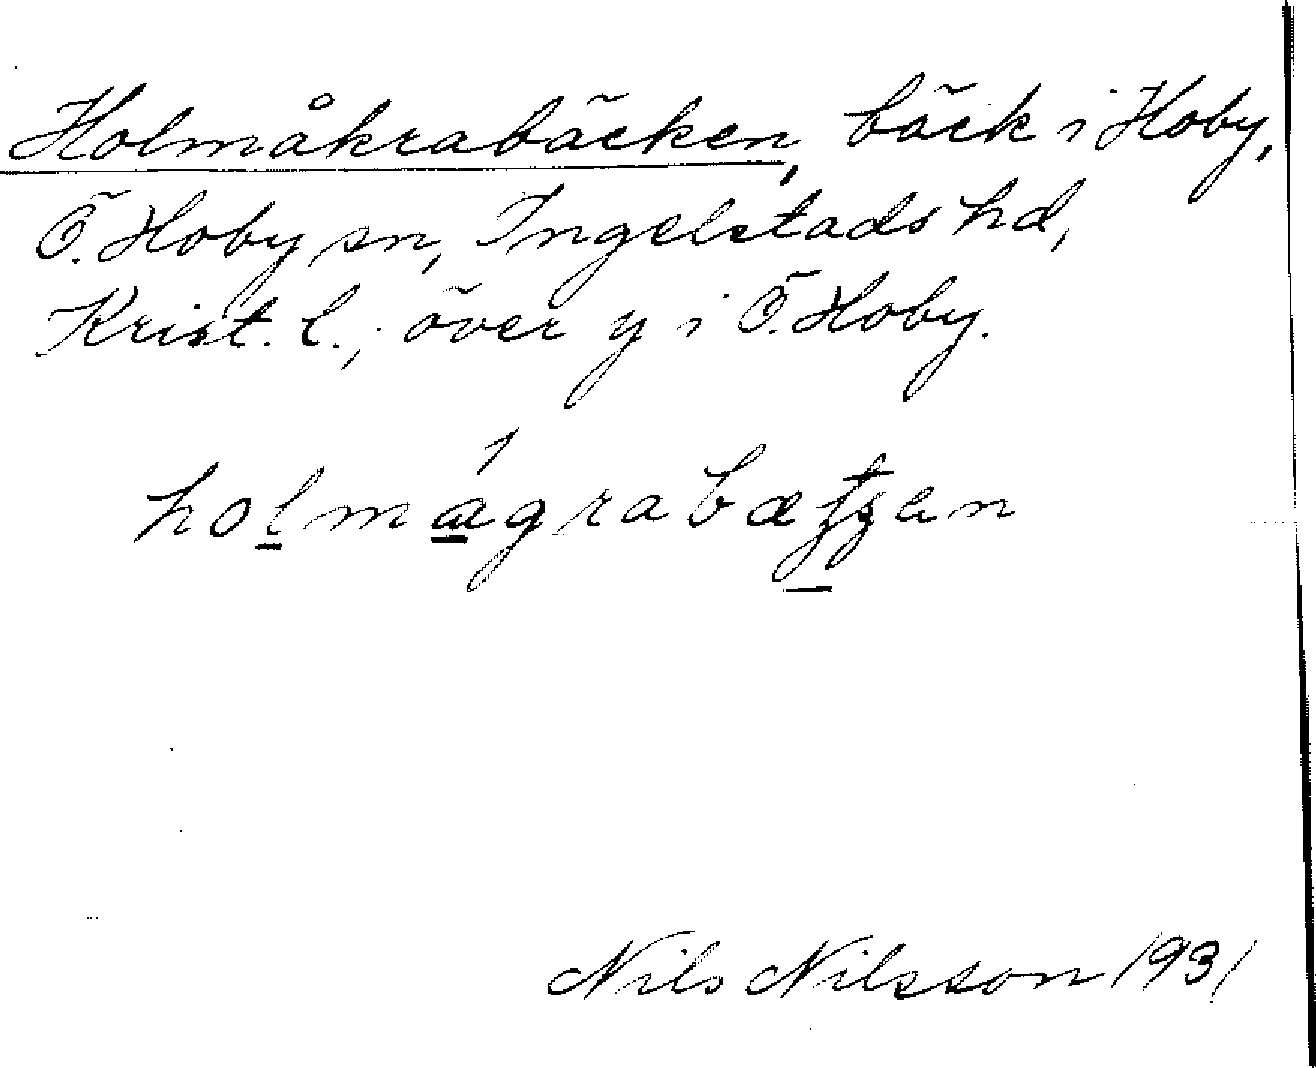 Holmåkrabäcken, bäck i Hoby,
Ö. Hoby sn, Ingelstads hd,
Krist. l., över y i Ö. Hoby.
Nils Nilsson 1931